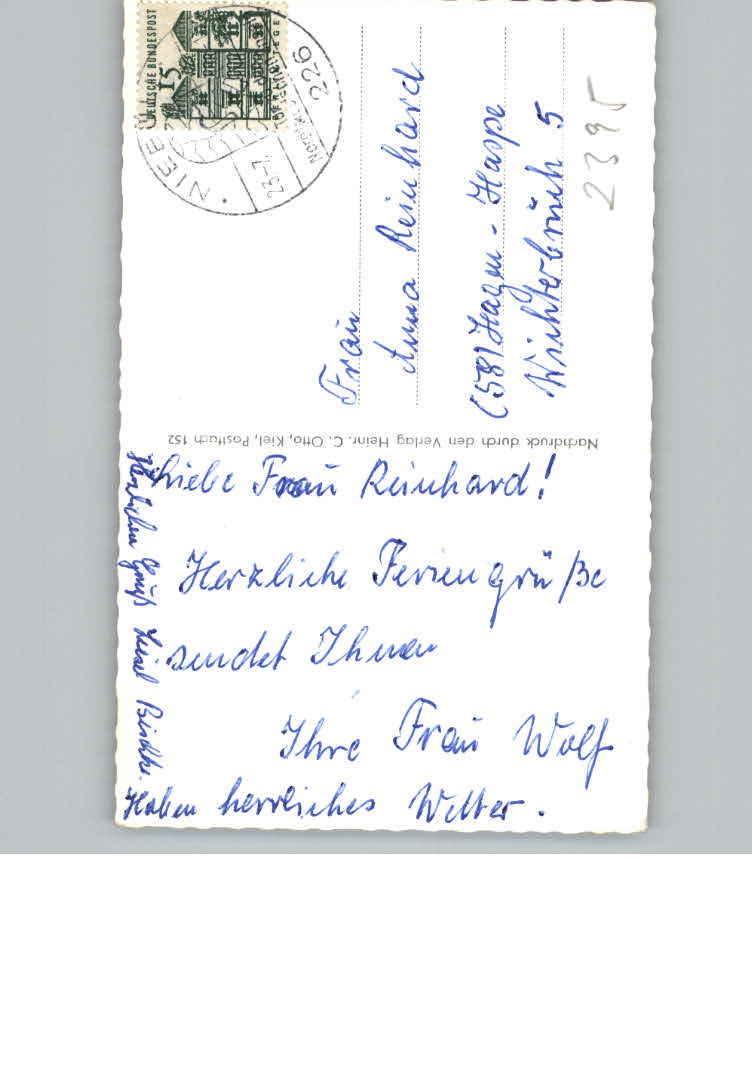 Liebe Frau Reinhard!
Herzliche Feriengrüße
sendet Ihnen
Ihre Frau Wolf
Haben herrliches Wetter.
Herzlichen Gruß Liesel
Nachdruck durch den Verlag Heinr. C. Otto, Kiel, Postfach 152
Frau
Anna Reinhard
(581 Hagen - Haspe
5
2395
DEUTSCHE BUNDESPOST
15
226
23-7